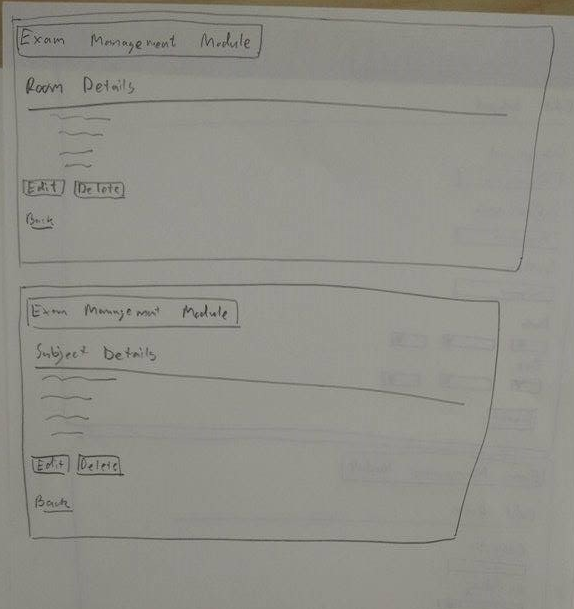 Exam Management Module
Room Details
Edit Delete
Back
Exam Management Module
Subject Details
Edit Delete
Back